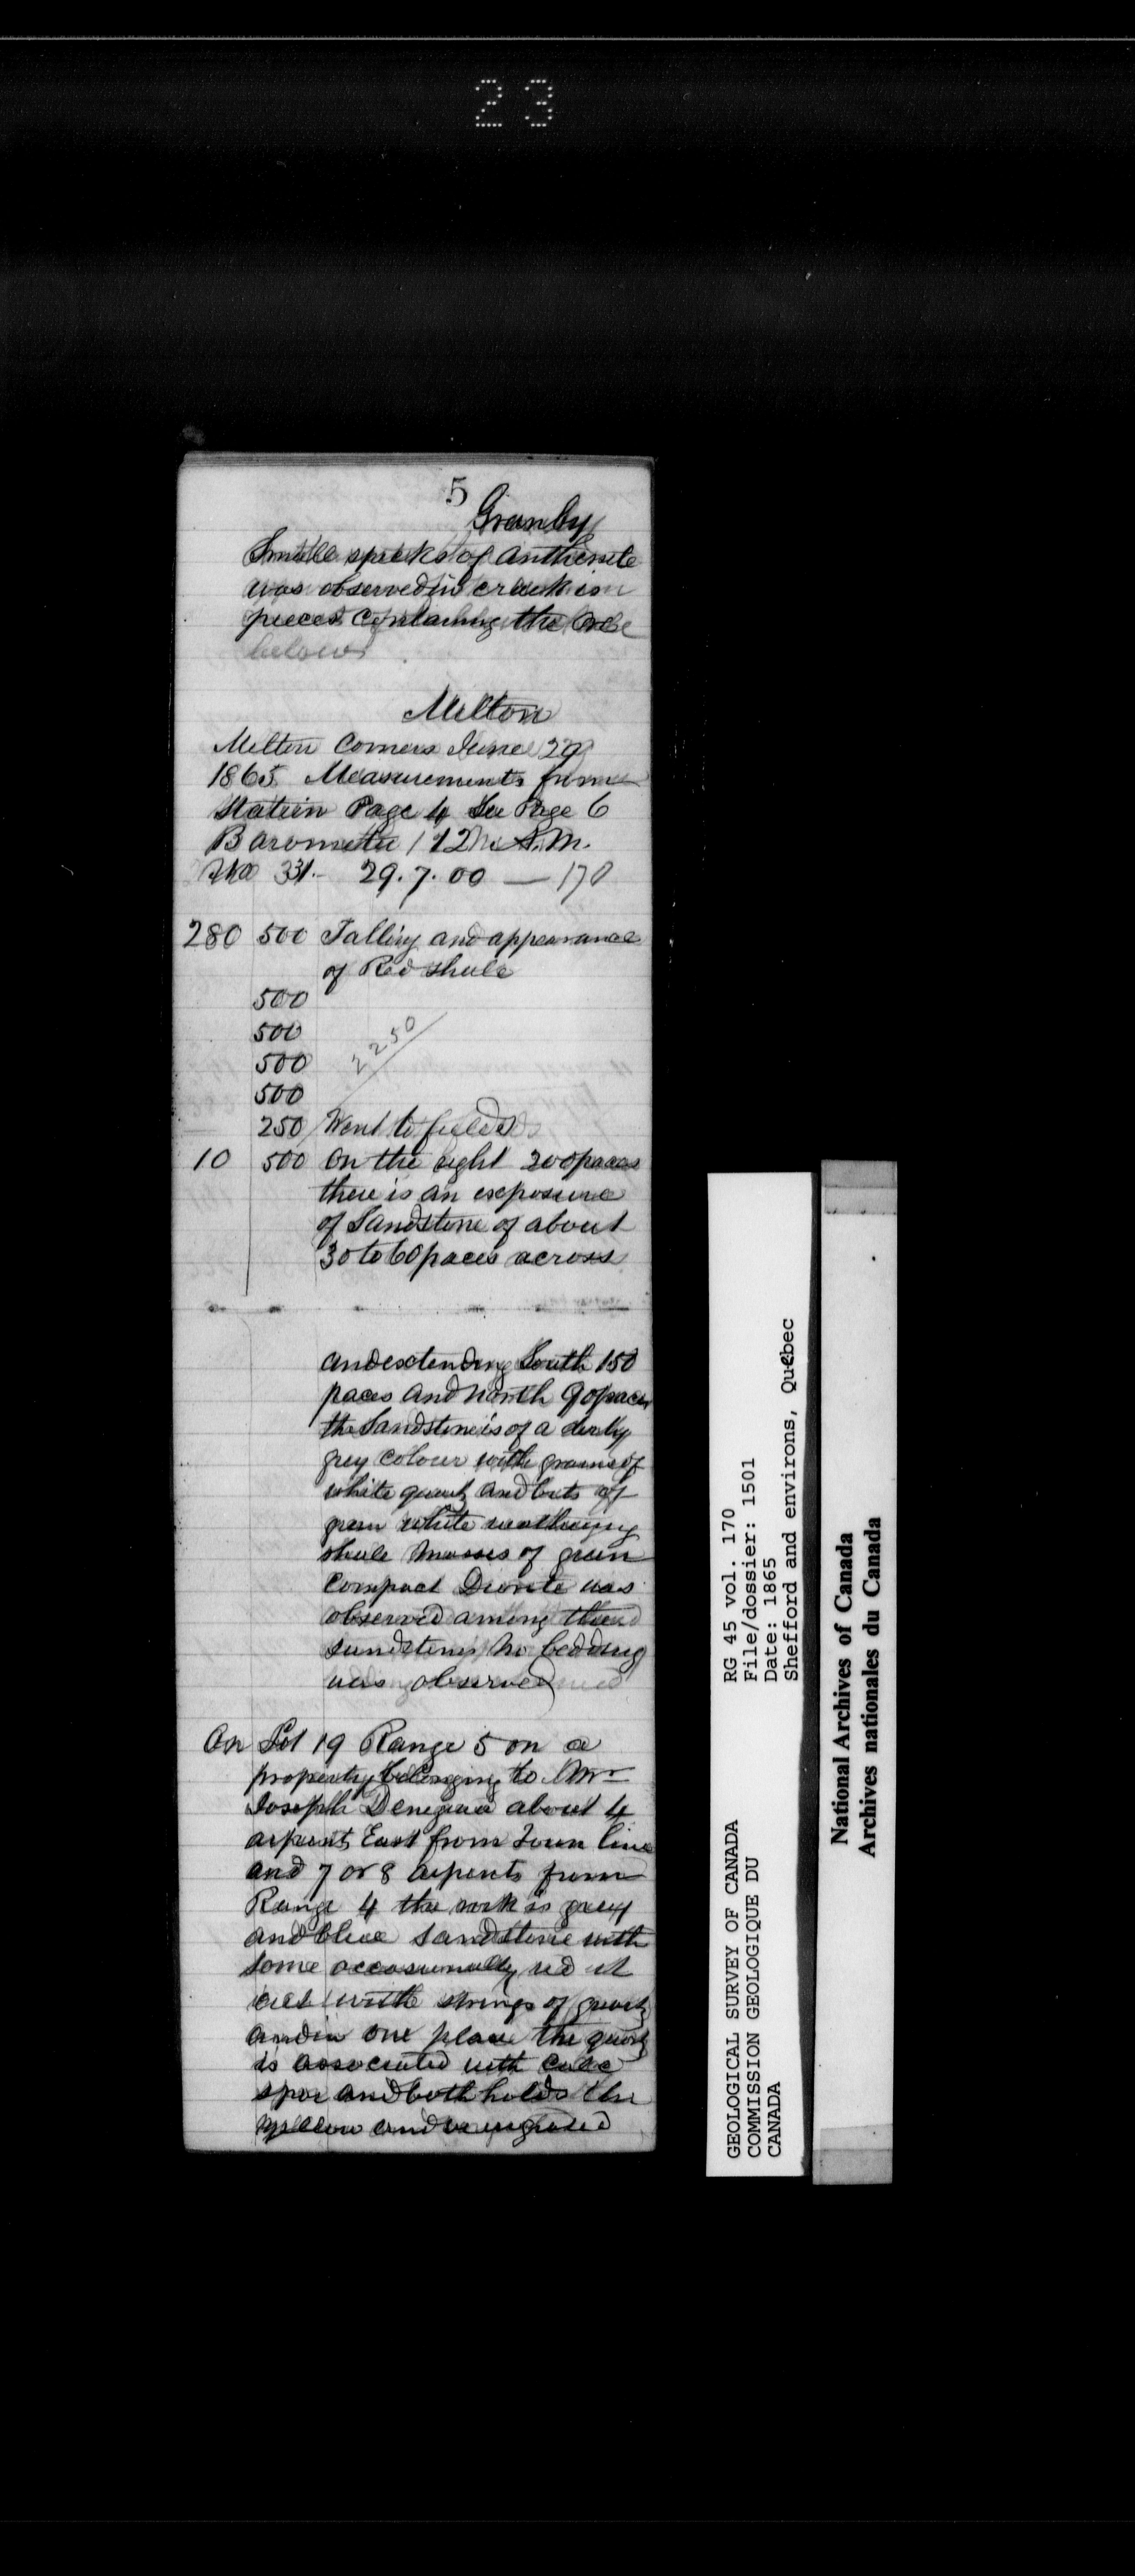 23
5
Granby
Smalle specks of anthersite
was observed in crack in
pieces containing the ore
below
Milton
Milton Corners June 29
1865 Measurements from
Station Page 4 See Page 6
Barometer 12 A.M.
No 331.- 29.7.00 — 170
280 500 Falling and appearance
of Red shale
500
500
500
500
2250
250 Went to fields
10 500 On the right 200 paces
there is an exposure
of Sandstone of about
30 to 60 paces across
and extending South 150
paces and north 90 paces
the Sandstone is of a
grey colour with grains of
white quartz and bits of
green white weathering
shale Masses of green
Compact Diorite was
observed among the
sandstone no bedding
was observed
On Lot 19 Range 5 on a
property belonging to Mr
Joseph about 4
arpents East from Town line
and 7 or 8 arpents from
Range 4 the rock is grey
and blue Sandstone with
some occasionally red it
with strings of quartz
and in one place the quartz
is associated with calc
spar and both holds the
yellow and variegated
GEOLOGICAL SURVEY OF CANADA
COMMISSION GEOLOGIQUE DU
CANADA
RG 45 vol. 170
File/dossier: 1501
Date: 1865
Shefford and environs, Quebec
National Archives of Canada
Archives nationales du Canada